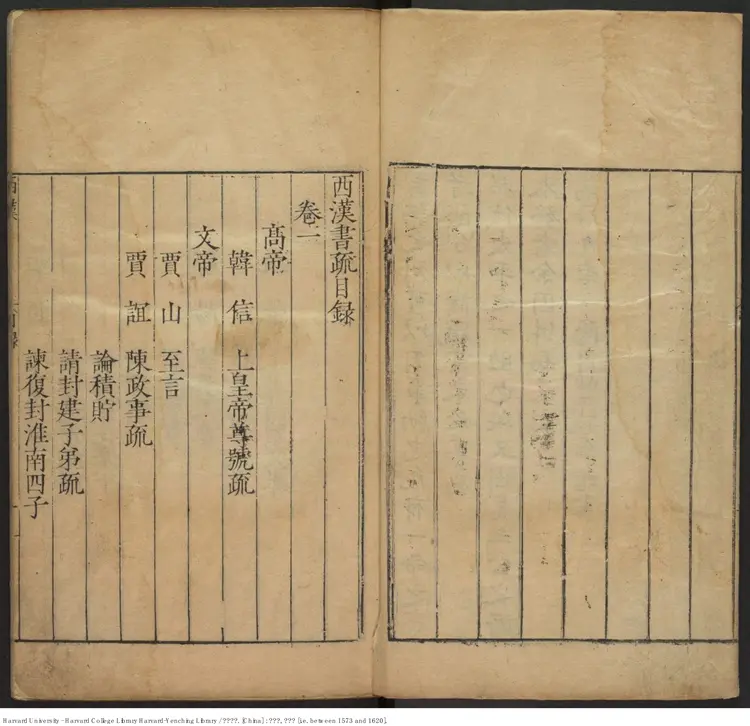 西漢書疏目録
卷一
髙帝
韓信 上皇帝尊號疏
文帝
賈山 至言
賈誼 陳政事疏
論積貯
請封建子弟疏
諫復封淮南四子
西漢
目録
Harvard University - Harvard College Library Harvard-Yenching Library / ????. [China] : ???, ??? [i.e. between 1573 and 1620].